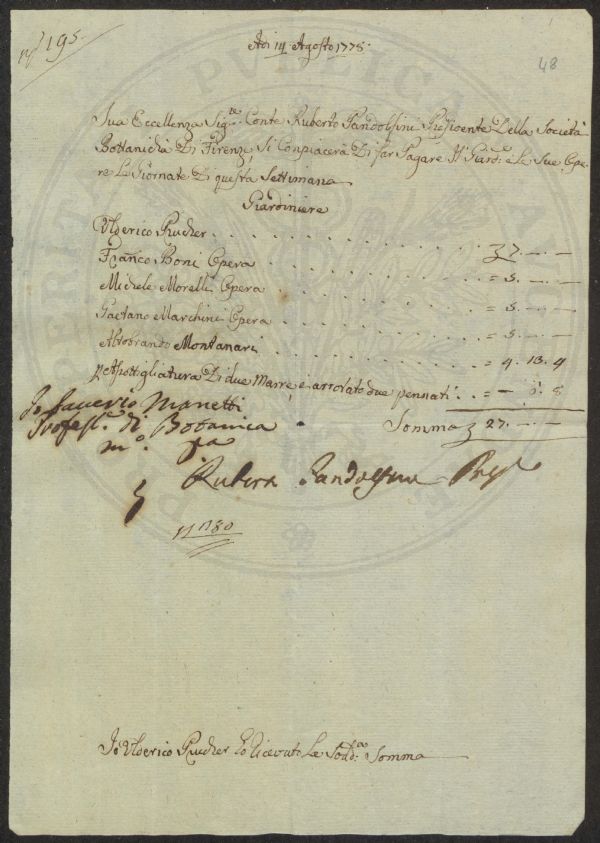 n° 195.
48
Adi 14 Agosto 1778.
Sua Eccellenza Sig.re Conte Ruberto Pandolfini Presidente Della Società
Bottanicha Di Firenze, Si Conpiacerà Di far Pagare Il Giard.e e Le Sue Ope-
re Le Giornate Di questa Settimana
Giardiniere
Ulderico Prucher 7.
Franco Boni Opera = 5.
Michele Morelli Opera = 5.
Gaetano Marchini Opera = 5.
Altobrando Montanari = 4. 13. 4
Due Marre, e arrotato due pennati = 8
Somma 27.
Io Saverio Manetti
Profess. di Botanica
m.o p.a
Rubero Pandolfini Pres.
n° 180
Io Ulderico Prucher ò Ricevuto La Sod.a Somma
PUBLICA
PROSPERITATI